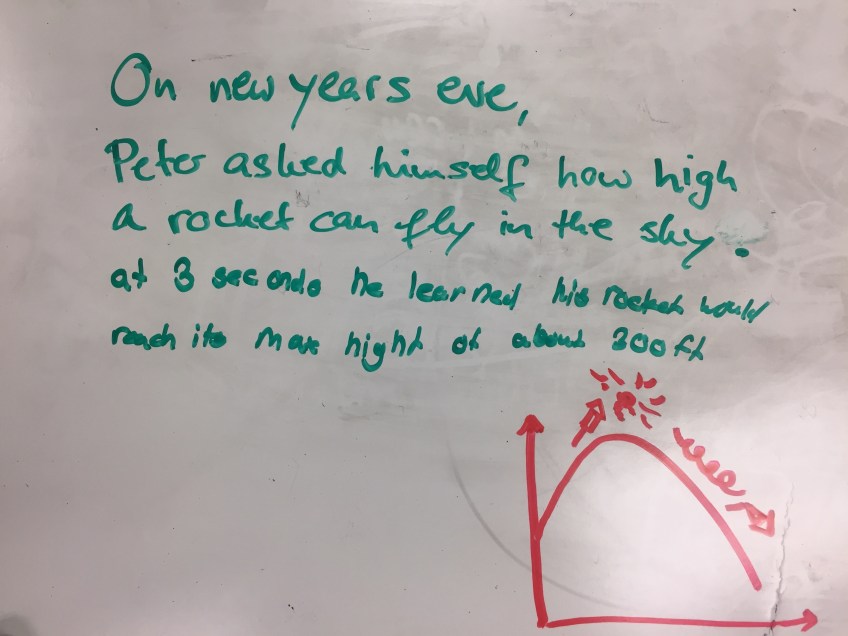 On new years eve,
Peter asked himself how high
a rocket can fly in the sky.
at 3 seconds he learned his rocket would
reach its max hight of about 300ft